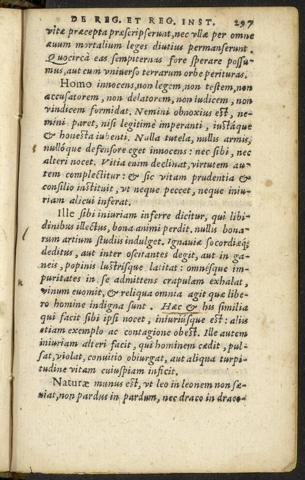 DE REG. ET REG. INST. 297
vitæ præcepta præscripserunt, nec vllæ per omne
æuum mortalium leges diutius permanserunt.
Quocircà eas sempiternas fore sperare possu-
mus, aut cum vniuerso terrarum orbe perituras.
Homo innocens, non legem, non testem, non
accusatorem, non delatorem, non iudicem, non
vindicem formidat. Nemini obnoxius est, ne-
mini paret, nisi legitimè imperanti, iustáque
& honesta iubenti. Nulla tutela, nullis armis,
nullóque defensore eget innocens: nec sibi, nec
alteri nocet. Vitia enim declinat, virtutem au-
tem complectitur: & sic vitam prudentia &
consilio instituit, vt neque peccet, neque iniu-
riam alicui inferat.
Ille sibi iniuriam inferre dicitur, qui libi-
dinibus illectus, bona animi perdit. nullis bona-
rum artium studiis indulget. Ignauiæ socordiæq;
deditus, aut inter oscitantes degit, aut in ga-
neis, popinis lustrisque latitat: omnésque im-
puritates in se admittens crapulam exhalat,
vinum euomit, & reliqua omnia agit quæ libe-
ro homine indigna sunt. Hæc & his similia
qui facit sibi ipsi nocet, iniuriúsque est: aliis
etiam exemplo ac contagione obest. Ille autem
iniuriam alteri facit, qui hominem cædit, pul-
sat, violat, conuitio obiurgat, aut aliqua turpi-
tudine vitam cuiuspiam inficit.
Naturæ munus est, vt leo in leonem non sæ-
uiat, non pardus in pardum, nec draco in draco-